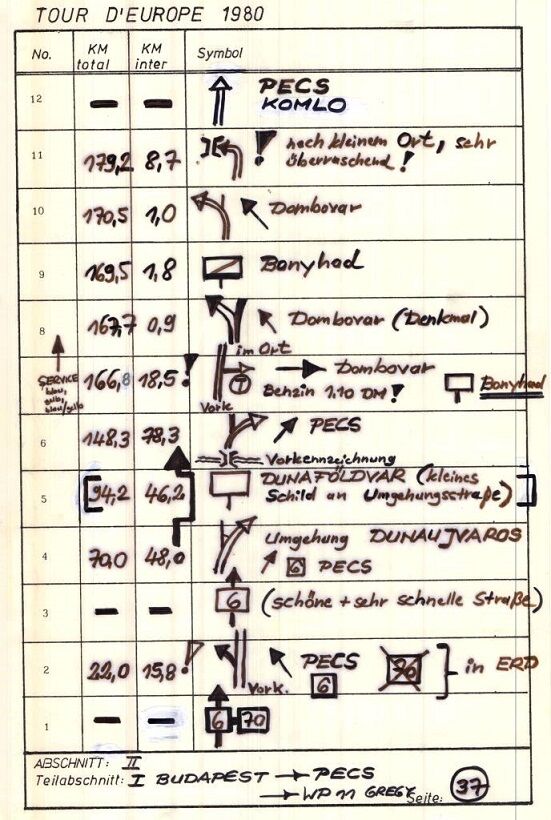 TOUR D'EUROPE 1980
No. KM total KM inter Symbol
12 — — PECS
KOMLO
11 179,2 8,7 ! nach kleinem Ort, sehr
überraschend!
10 170,5 1,0 Dombovar
9 169,5 1,8 Bonyhad
8 167,7 0,9 Dombovar (Denkmal)
im Ort
SERVICE
blau,
gelb,
blau/gelb
166,8 18,5! T Dombovar
Benzin 1.10 DM! Bonyhad
Vork.
6 148,3 78,3 PECS
Vorkennzeichnung
5 [94,2 46,2] DUNAFÖLDVAR (kleines
Schild an Umgehungsstraße)
4 70,0 48,0 Umgehung DUNAUJVAROS
6 PECS
3 — — 6 (schöne + sehr schnelle Straße)
2 22,0 15,8! PECS 70 in ERD
6
Vork.
1 — — 6 70
ABSCHNITT: II
Teilabschnitt: I BUDAPEST → PECS
→ WP 11 GREGY Seite: 37